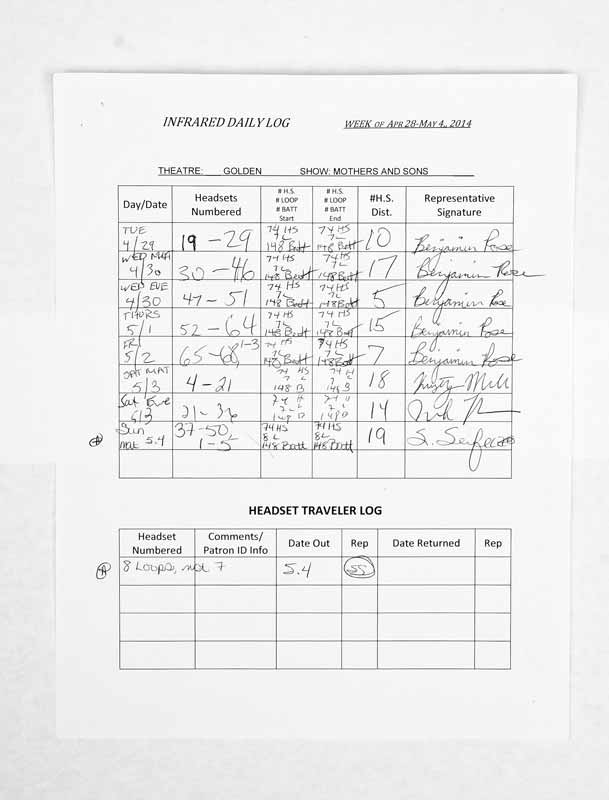 INFRARED DAILY LOG WEEK OF APR 28-MAY 4, 2014
THEATRE: GOLDEN SHOW: MOTHERS AND SONS
Day/Date Headsets Numbered # H.S. # LOOP # BATT Start # H.S. # LOOP # BATT End #H.S. Dist. Representative Signature
TUE 4/29 19-29 74 HS 7L 148 Batt 74 HS 7L 148 Batt 10 Benjamin Rose
WED MAT 4/30 30-46 74 HS 7L 148 Batt 74 HS 7L 148 Batt 17 Benjamin Rose
WED EVE 4/30 47-51 74 HS 7L 148 Batt 74 HS 7L 148 Batt 5 Benjamin Rose
THURS 5/1 52-64 74 HS 7L 148 Batt 74 HS 7L 148 Batt 15 Benjamin Rose
FRI 5/2 65-68, 1-3 74 HS 7L 148 Batt 74 HS 7L 148 Batt 7 Benjamin Rose
SAT MAT 5/3 4-21 74 HS 7 L 148 B 74 H 7 L 148 B 18
Sat Eve 5/3 21-36 74 H 7 L 148 B 74 H 7 L 148 B 14
Sun Mat 5.4 37-50 1-5 74 HS 8L 148 Batt 74 HS 8L 148 Batt 19 S.
HEADSET TRAVELER LOG
Headset Numbered Comments/ Patron ID Info Date Out Rep Date Returned Rep
8 Loops, not 7 5.4 SS